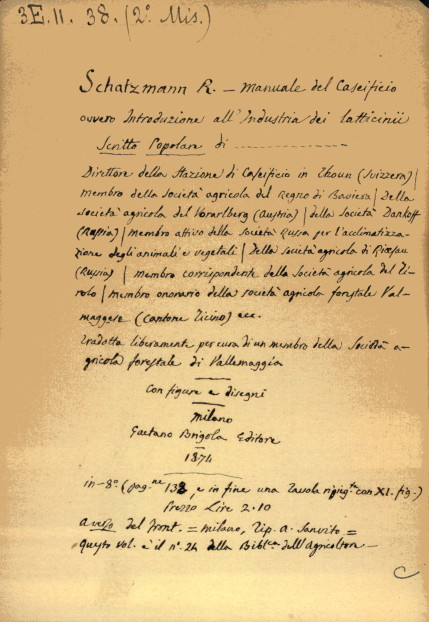 3E.11. 38. (2º. Mis.)
Schatzmann R. — Manuale del Caseificio
ovvero Introduzione all'Industria dei latticinii
Scritto Popolare di ----------------
Direttore della Stazione di Caseificio in Thoun (Svizzera) |
membro della Società agricola del Regno di Baviera | Della
Società agricola del Vorarlberg (Austria) | della Società Dankoff
(Russia) | membro attivo della Società Russa per l'acclimatiz-
zazione degli animali e vegetali | Della Società agricola di
(Russia) | membro corrispondente della Società agricola del Ti-
rolo | membro onorario della società agricola forestale Val-
maggese (Cantone Ticino) ecc.
Tradotta liberamente per cura di un membro della Società a-
gricola forestale di Vallemaggia
Con figure e disegni
Milano
Gaetano Brigola Editore
1874
in-8º. (pag.ne 138, e in fine una Tavola ripieg.ta con XI. fig.)
Prezzo Lire 2.10
a verso del front. = Milano, Tip. A. Sanvito =
questo vol. è il nº. 24 della Bibl.ca dell'Agricoltore —